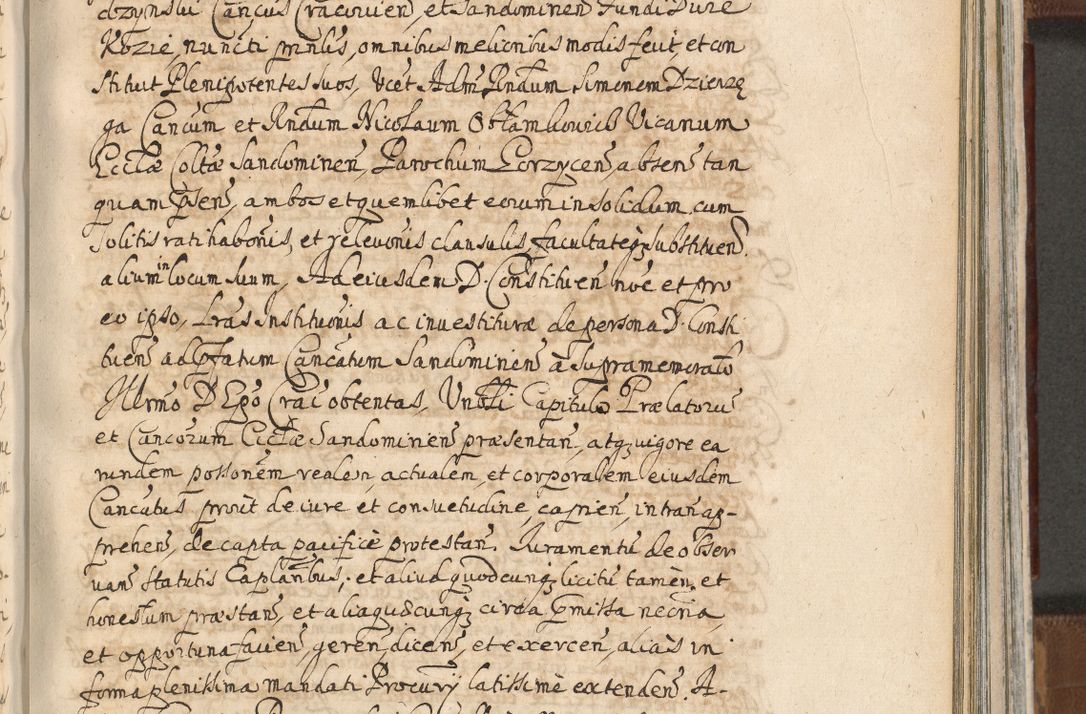 dzynski Cancus Cracovien, et Sandominen Fundi Dure
Kozie, nuncti prnlis, omnibus melioribus modis fecit, et con
stituit Plenipotentes suos, Vcet Adm Rndum Simonem Dzierzę
ga Cancum et Rndum Nicolaum Ostamkowicz Vicanum
Ecclæ Coltæ Sandominen, Parochum Gorzycen, absens tan
quam psens, ambos et quemlibet eorum in solidum, cum
solitis ratihabonis, et relevonis clausulis, facultateq; substituen.
alium in locum suum, Ad eiusdem D. Constituen noe et pro
eo ipso, Lras Institutonis ac investituræ de persona D. Consti
tuen ad pfatum Cancatum Sandominien à supramemorato
Illrmo D Epo Crac obtentas, Vnbli Capitulo Prælatoru
et Cancorum Ecclæ Sandominens præsentan, atq; vigore ea
rundem possonem realem actualem, et corporalem eiusdem
Cancatus prout de iure et consuetudine, capien, intran ap-
prehen, de capta pacificè protestan. Juramentu de obser
van statutis Caplanbus, et aliud quodcunq; licitu tamen, et
honestum præstan, et alia quæcunq; circa pmissa necria,
et opportuna facien, geren, dicen, et exercen, aliàs in
forma plenissima mandati Procurij latissimè extenden. A-